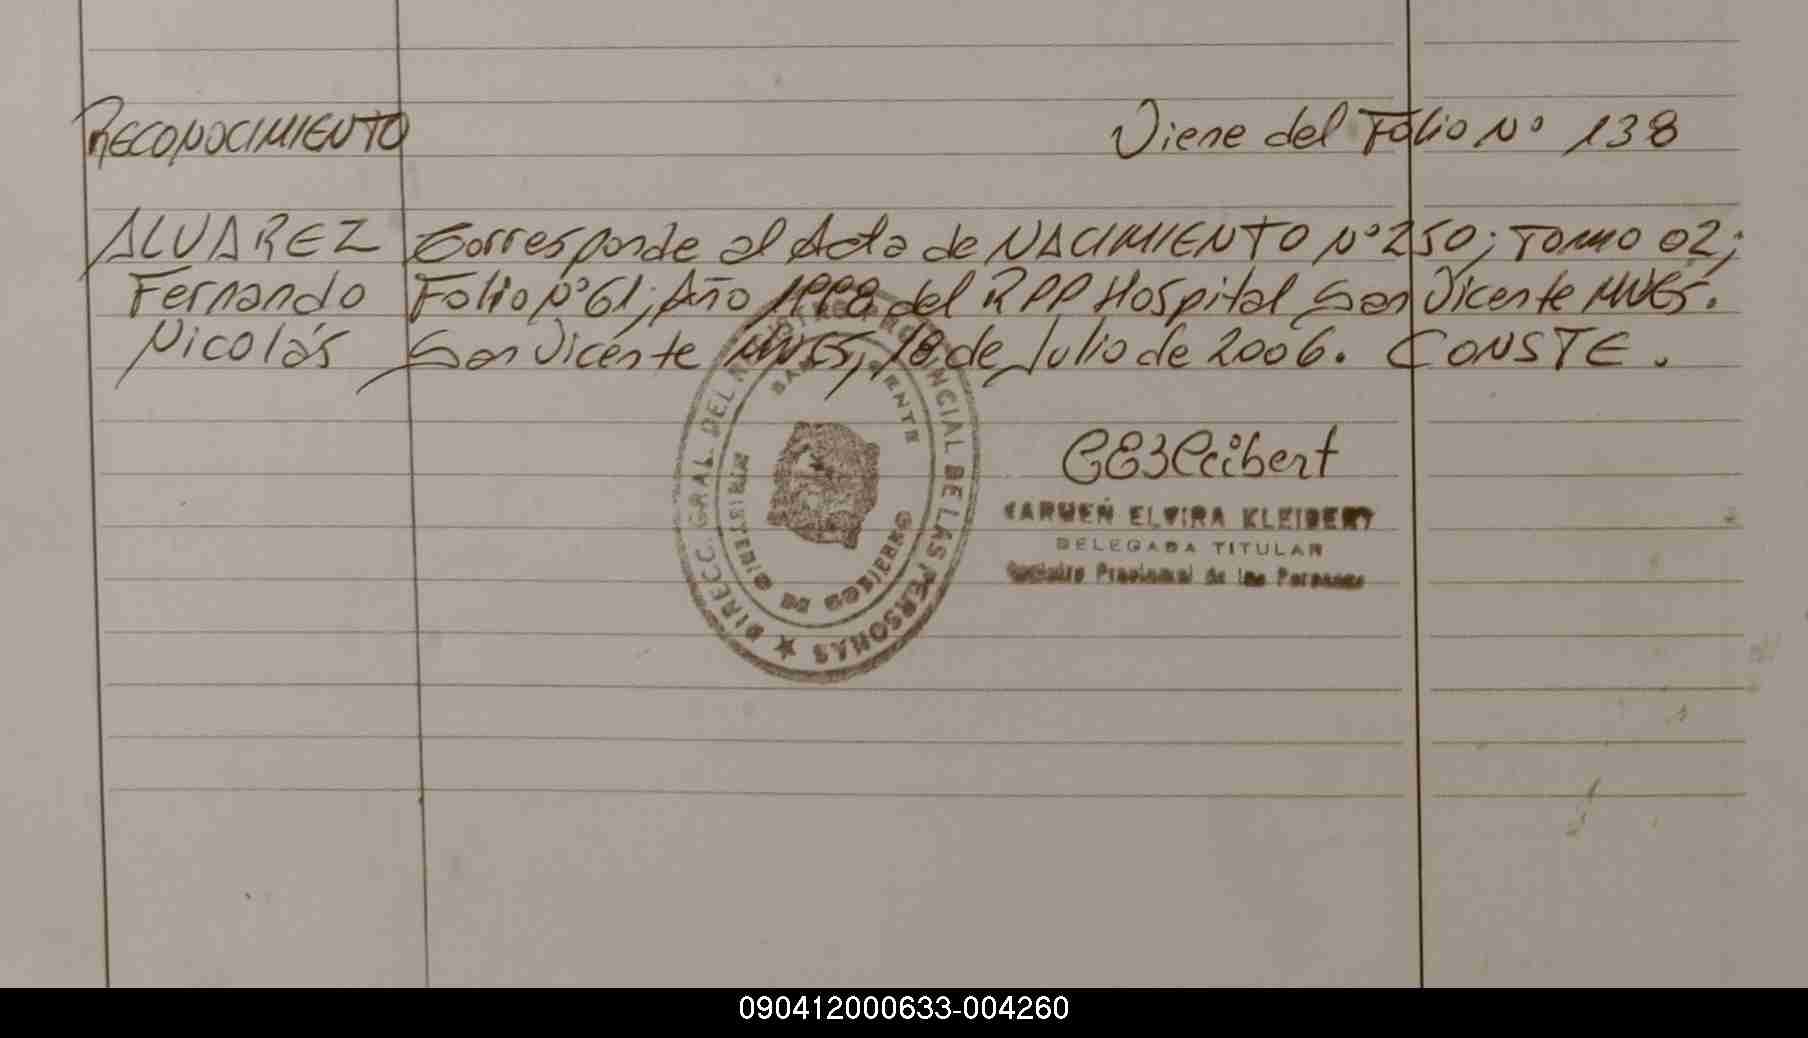 RECONOCIMIENTO Viene del Folio Nº 138
ALVAREZ Corresponde al Acta de NACIMIENTO Nº 250; TOMO 02;
Fernando Folio Nº 61; Año 1998 del RPP Hospital San Vicente MNES.
Nicolás San Vicente MNES, 18 de Julio de 2006. CONSTE.
DIRECC. GRAL. DEL PROVINCIAL DE LAS PERSONAS
SAN VICENTE
MINISTERIO DE GOBIERNO
CARMEN ELVIRA KLEIBERT
DELEGADA TITULAR
Registro Provincial de las Personas
090412000633-004260